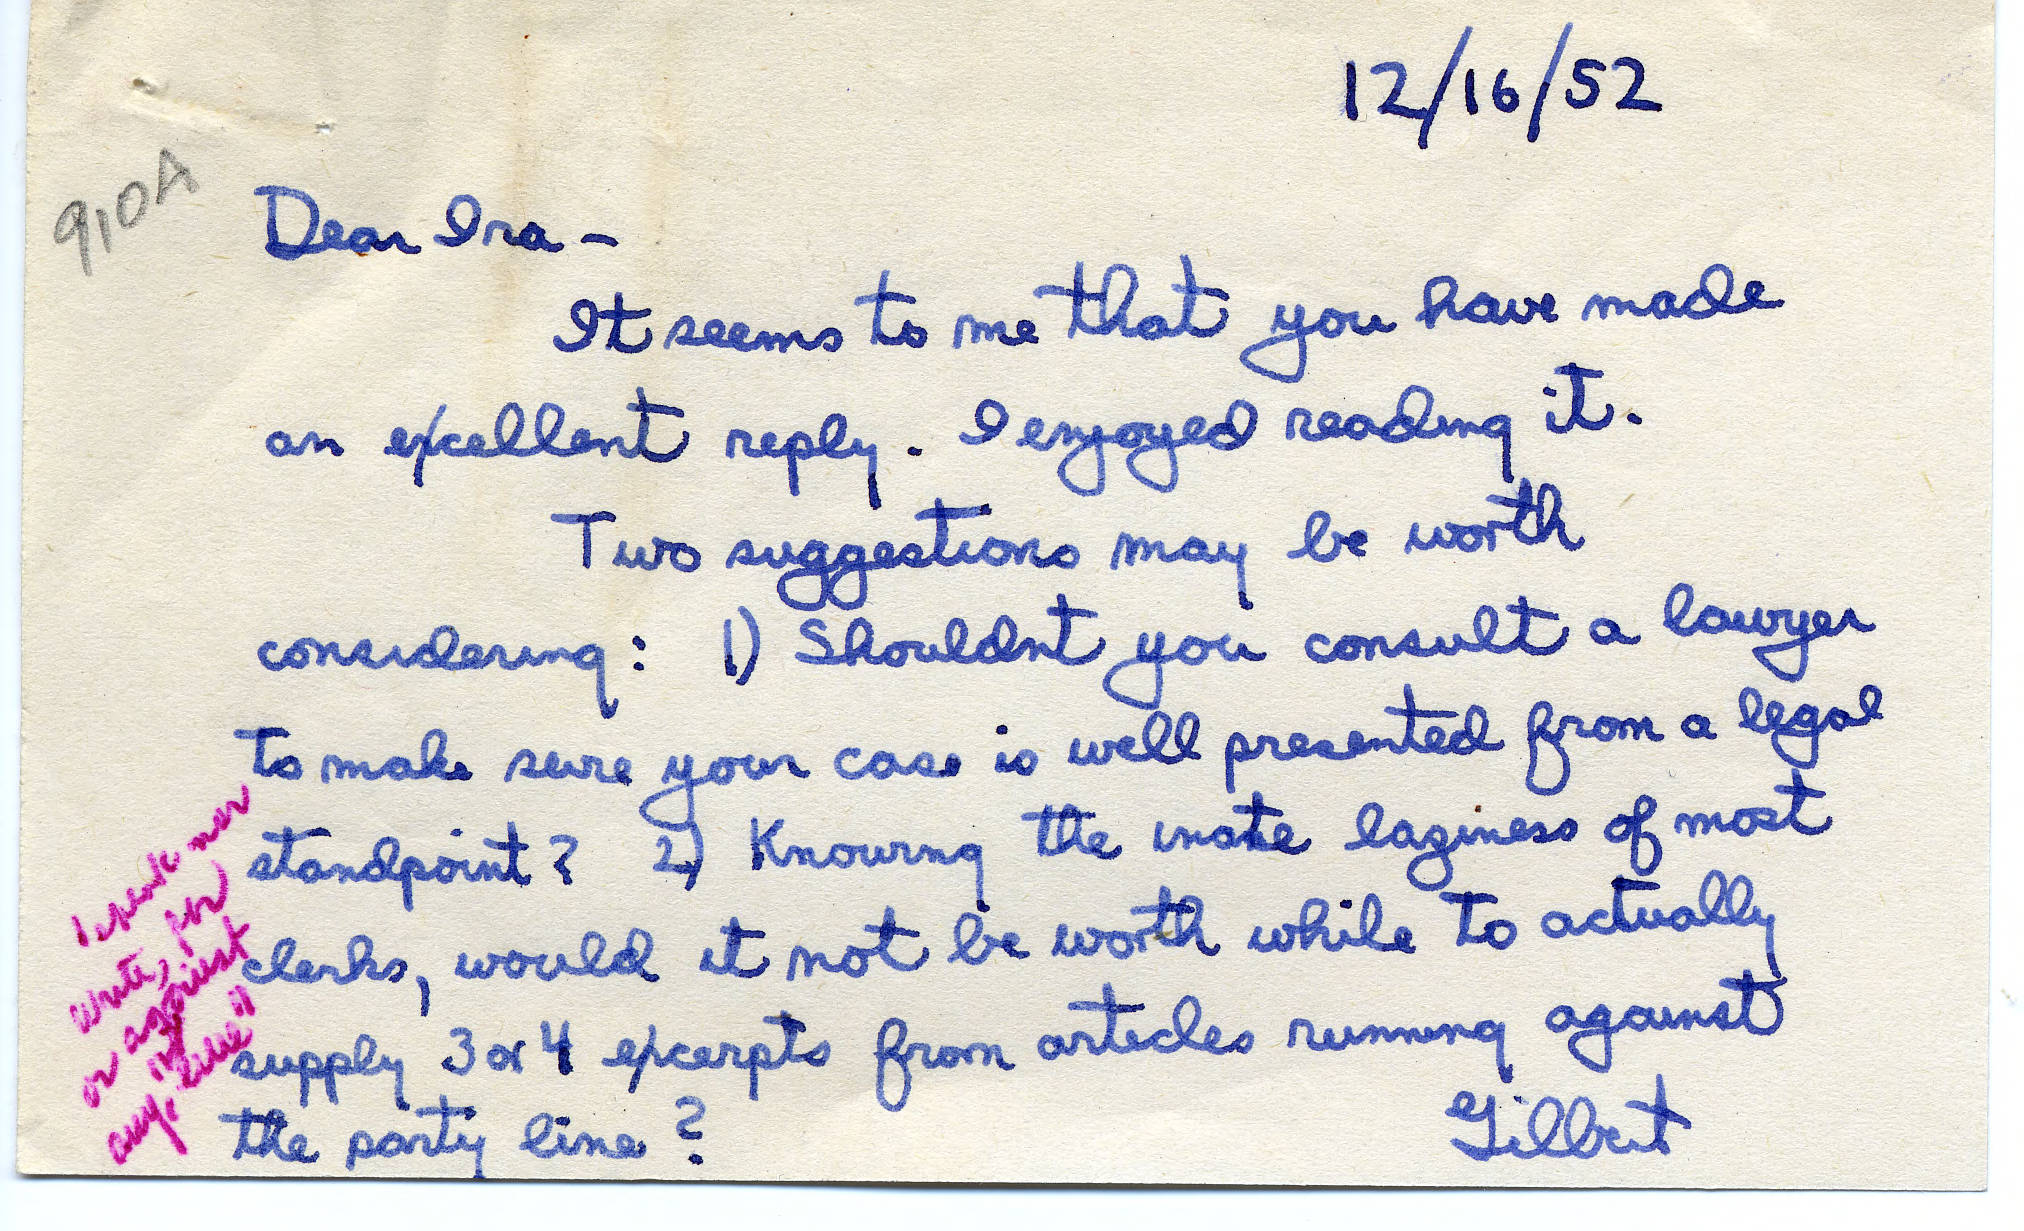 12/16/52
910A
Dear Ira –
It seems to me that you have made
an excellent reply. I enjoyed reading it.
Two suggestions may be worth
considering: 1) Shouldnt you consult a lawyer
to make sure your case is well presented from a legal
standpoint? 2) Knowing the inate laziness of most
clerks, would it not be worth while to actually
supply 3 or 4 excerpts from articles running against
the party line?
Gilbert
I
write, for
or against
any "line"